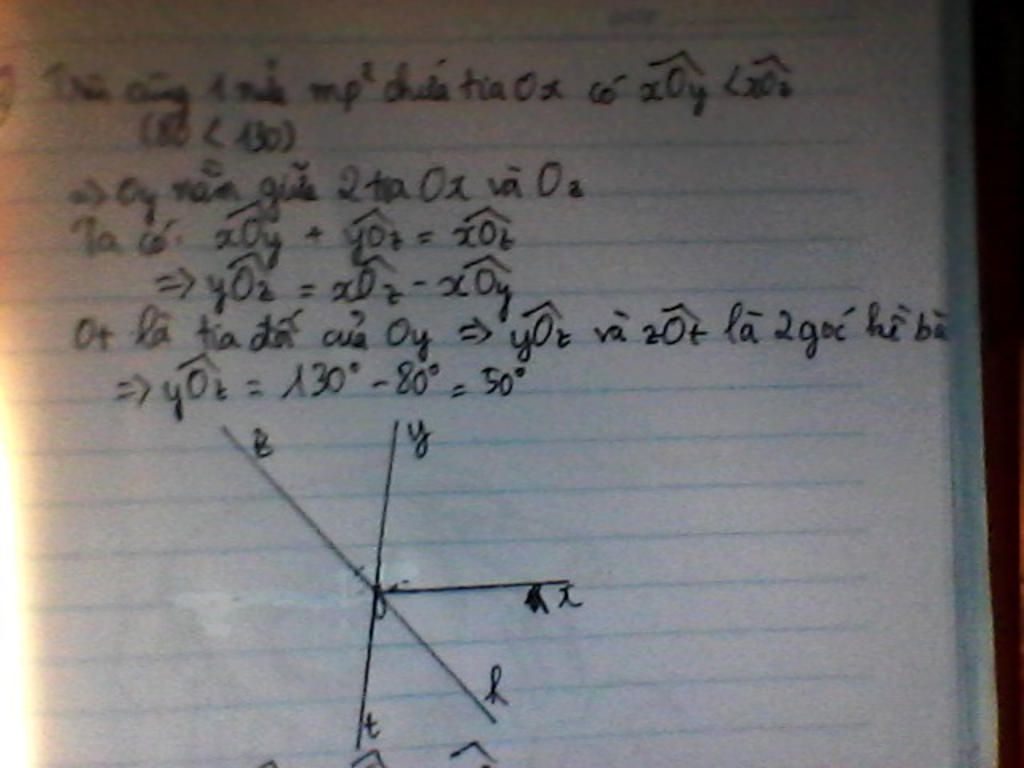 Trên cùng 1 nửa mp² chứa tia Ox có xÔy < xÔz
(80 < 130)
=> Oy nằm giữa 2 tia Ox và Oz
Ta có: xÔy + yÔz = xÔz
=> yÔz = xÔz - xÔy
Ot là tia đối của Oy => yÔz và zÔt là 2 góc kề bù
=> yÔz = 130° - 80° = 50°
z y
x
O
k
t